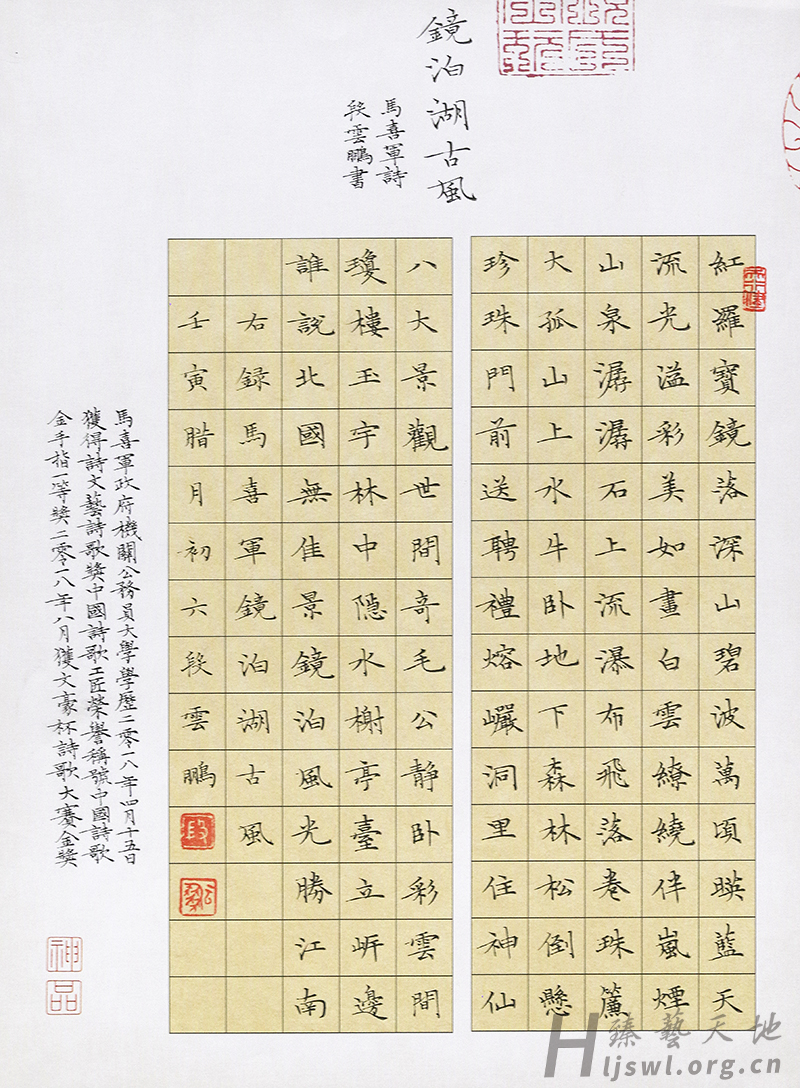 鏡泊湖古風
馬喜軍詩
段雲鵬書
紅羅寶鏡落深山碧波萬頃映藍天
流光溢彩美如畫白雲繚繞伴嵐煙
山泉潺潺石上流瀑布飛落卷珠簾
大孤山上水牛卧地下森林松倒懸
珍珠門前送聘禮熔巖洞里住神仙
八大景觀世間奇毛公静卧彩雲間
瓊樓玉宇林中隱水榭亭臺立岍邊
誰說北國無佳景鏡泊風光勝江南
右録馬喜軍鏡泊湖古風
壬寅腊月初六段雲鵬
馬喜軍政府機關公務員大學學歷二零一八年四月十五日
獲得詩文藝詩歌獎中國詩歌工匠榮譽稱號中國詩歌
金手指一等獎二零一八年八月獲文豪杯詩歌大賽金獎
神品
臻藝天地
Hljswl.org.cn